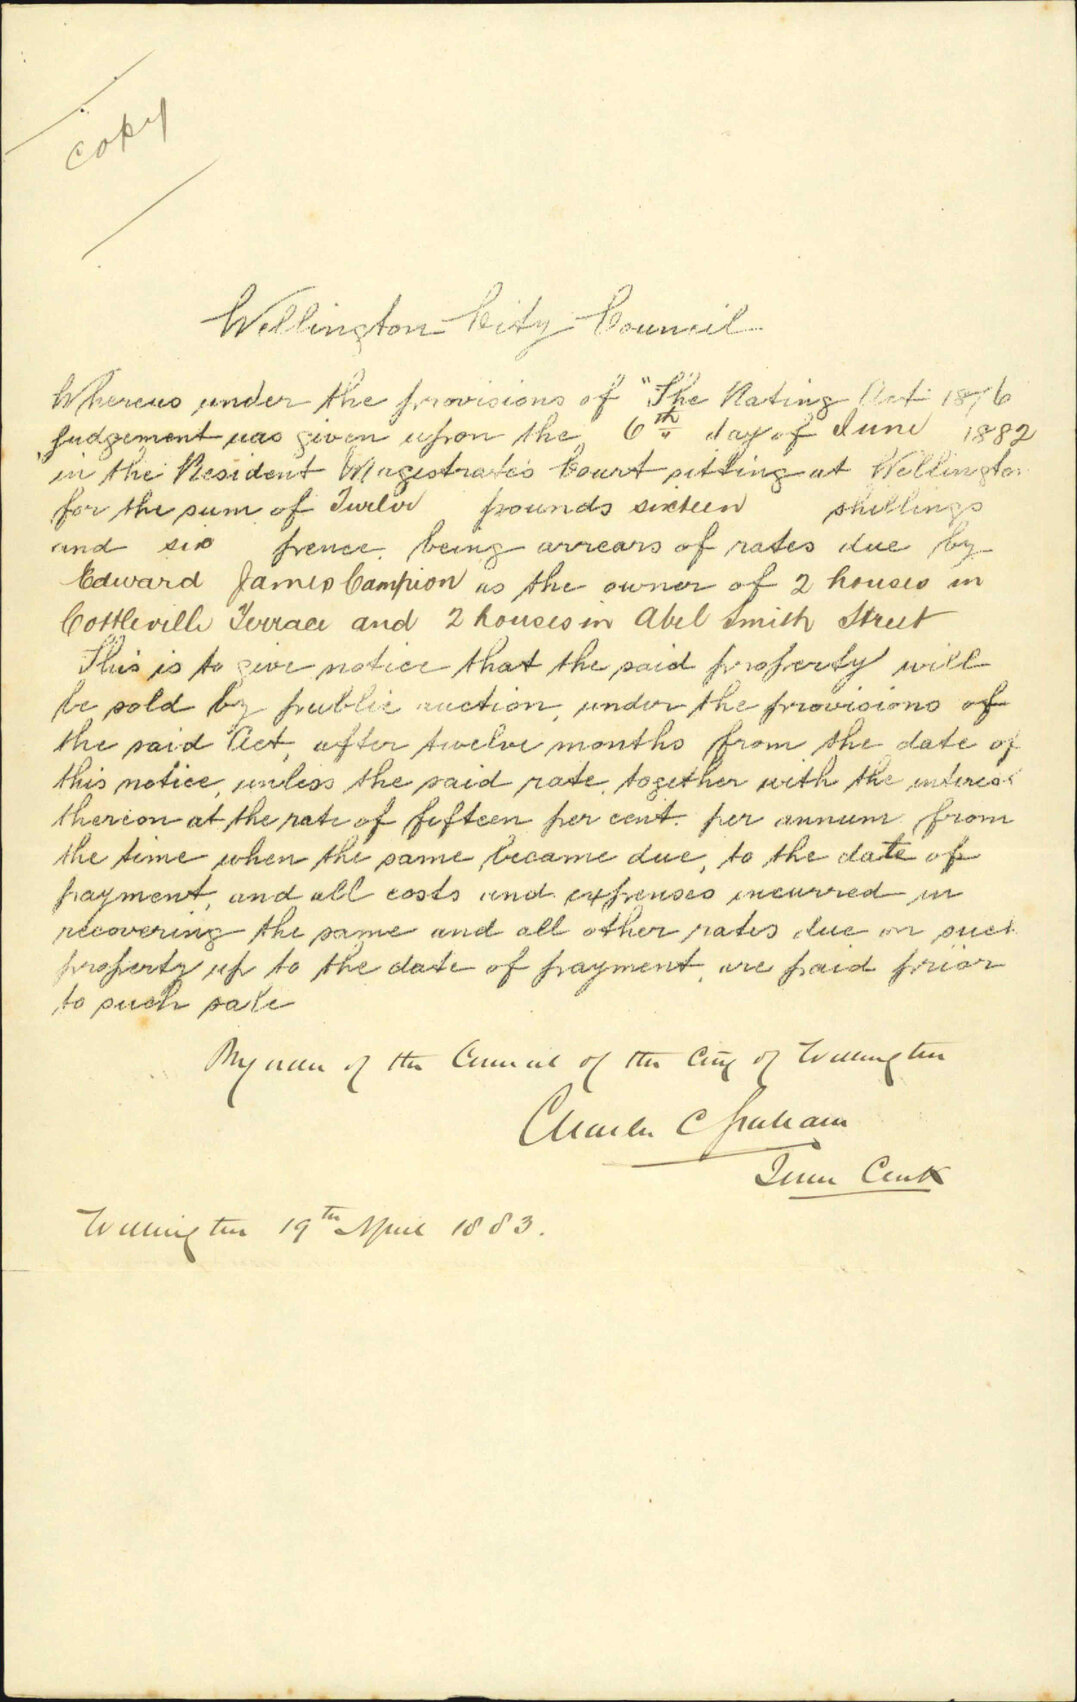 Copy
Wellington City Council
Whereas under the provisions of "The Rating Act 1876
judgement was given upon the 6th day of June 1882
in the Resident Magistrate's Court sitting at Wellington
for the sum of Twelve pounds sixteen shillings
and six pence, being arrears of rates due by
Edward James Campion as the owner of 2 houses in
Cottleville Terrace and 2 houses in Abel Smith Street
This is to give notice that the said property will
be sold by public auction, under the provisions of
the said Act, after twelve months from the date of
this notice, unless the said rate, together with the interest
thereon at the rate of fifteen per cent. per annum from
the time when the same became due, to the date of
payment, and all costs and expenses incurred in
recovering the same and all other rates due on such
property up to the date of payment, are paid prior
to such sale
By order of the Council of the City of Wellington
Charles C Graham
Town Clerk
Wellington 19th April 1883.